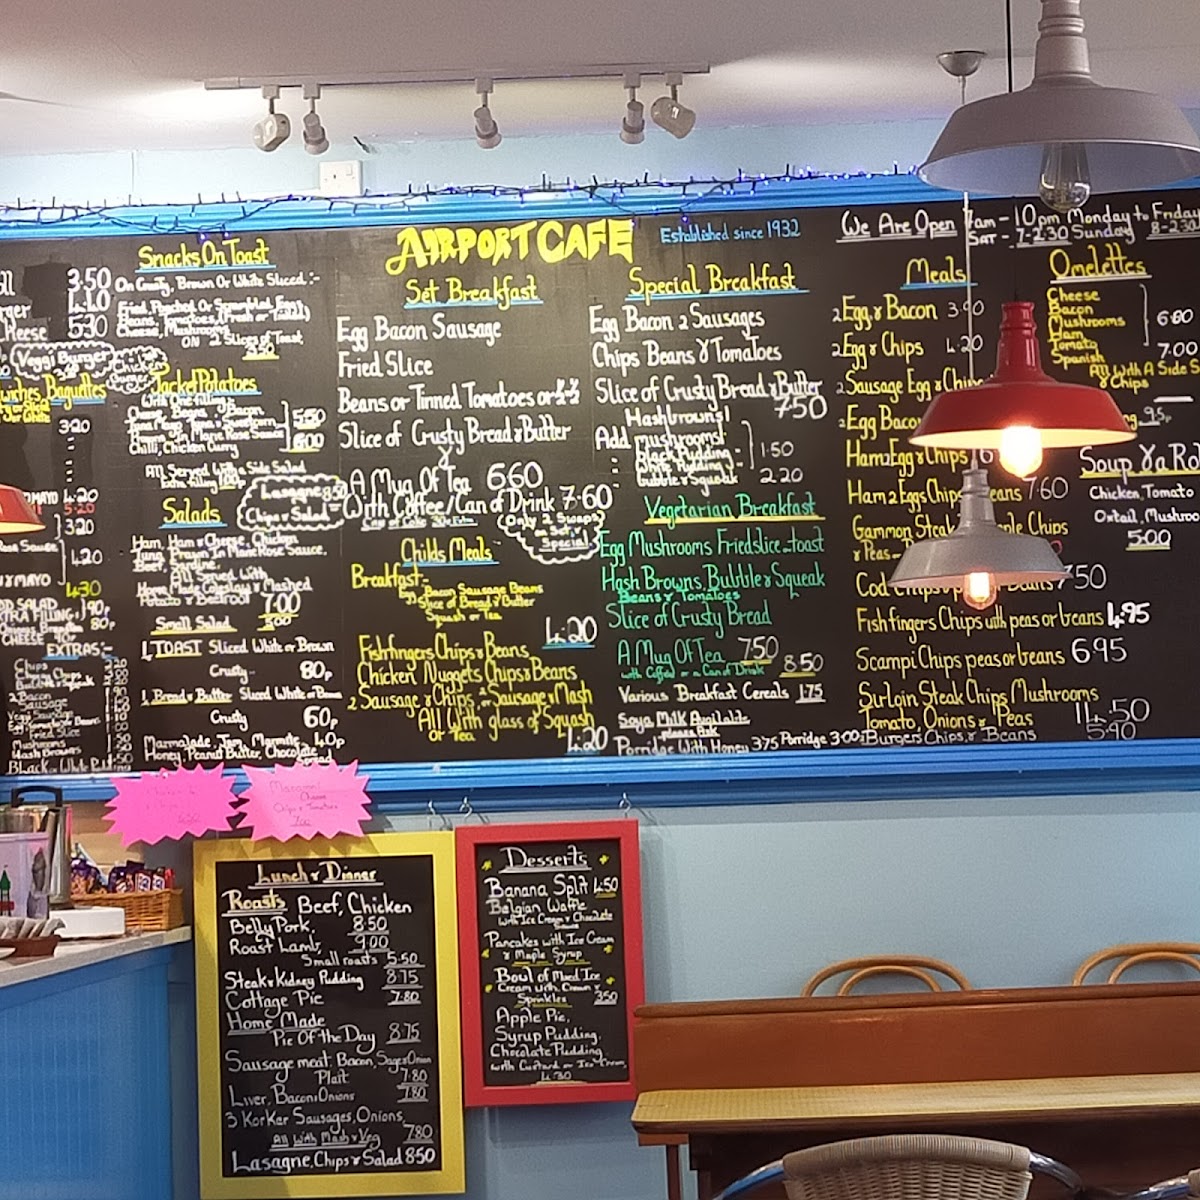 3.50
4.10
Cheese 5.30
Veggi Burger
Chicken
Burger
Baguettes
3.20
MAYO 4.20
5.20
3.20
Rose Sauce
4.20
MAYO
4.30
SALAD
EXTRA FILLING 90p
80p
CHEESE
EXTRAS:-
Chips
2 Bacon
Sausage
Fried Slice
Mushrooms
Hash Browns
Snacks On Toast
On Crusty, Brown Or White Sliced:-
Fried, Poached Or Scrambled Eggs
Beans, Tomatoes (Fresh or Tinned)
Cheese, Mushrooms
ON 2 Slices of Toast
Jacket Potatoes
With One filling:-
Cheese, Beans, Bacon
Tuna Mayo, Tuna & Sweetcorn 5.50
Prawns In Marie Rose Sauce
Chilli, Chicken Curry 6.00
All Served With a Side Salad
Extra filling 100p
Salads
Lasagne 8.50
Chips & Salad
Ham, Ham & Cheese, Chicken
Tuna, Prawn In Marie Rose Sauce,
Beef, Sardine.
All Served With
Home Made Coleslaw & Mashed
Potato & Beetroot 7.00
Small Salad 5.00
1 TOAST Sliced White or Brown
Crusty 80p
1 Bread & Butter Sliced White or Brown
Crusty 60p
Marmalade, Jam, Marmite, 40p
Honey, Peanut Butter, Chocolate
Spread
AIRPORT CAFE
Established since 1932
Set Breakfast
Egg Bacon Sausage
Fried Slice
Beans or Tinned Tomatoes or ½-½
Slice of Crusty Bread & Butter
&
A Mug Of Tea 6.60
With Coffee/Can of Drink 7.60
Only 2 Swaps
on Set &
Special
Childs Meals
Breakfast:-
Egg Bacon Sausage Beans
Slice of Bread & Butter
Squash or Tea
4.20
Fishfingers Chips & Beans
Chicken Nuggets Chips & Beans
2 Sausage & Chips, or 2 Sausage & Mash
All With glass of Squash
or Tea. 4.20
Special Breakfast
Egg Bacon 2 Sausages
Chips Beans & Tomatoes
Slice of Crusty Bread & Butter
7.50
Add Hashbrowns 1
mushrooms
black Pudding 1.50
White Pudding
bubble & Squeak 2.20
Vegetarian Breakfast
Egg Mushrooms Fried Slice or toast
Hash Browns, Bubble & Squeak
Beans & Tomatoes
Slice of Crusty Bread
A Mug Of Tea 7.50
with Coffee or a Can of Drink 8.50
Various Breakfast Cereals 1.75
Soya Milk Available
please Ask
Porridge With Honey 3.75 Porridge 3.00
We Are Open 7am - 10pm Monday to Friday
SAT - 7-2.30 Sunday 8-2.30
Meals
2 Egg & Bacon 3.90
2 Egg & Chips 4.20
2 Sausage Egg & Chips
2 Egg Bacon
Ham 2 Egg & Chips
Ham 2 Eggs Chips Beans 7.60
Gammon Steak Chips
& Peas
Cod Chips Beans 7.50
Fishfingers Chips with peas or beans 4.95
Scampi Chips peas or beans 6.95
Sirloin Steak Chips Mushrooms
Tomato, Onions & Peas 14.50
Burgers Chips & Beans 5.90
Omelettes
Cheese
Bacon
Mushrooms 6.80
Ham
Tomato
Spanish 7.00
All With A Side
& Chips
95p
Soup & a Ro
Chicken, Tomato
Oxtail, Mushroo
5.00
Macaroni
Cheese
Chips & Tomatoes
7.00
Lunch & Dinner
Roasts Beef, Chicken
Belly Pork, 8.50
Roast Lamb, 9.00
Small roasts 5.50
Steak & Kidney Pudding 8.75
Cottage Pie 7.80
Home Made
Pie Of the Day 8.75
Sausage meat, Bacon, Sage & Onion
Plait 7.80
Liver, Bacon & Onions 7.80
3 Korker Sausages, Onions,
All With Mash & Veg 7.80
Lasagne, Chips & Salad 8.50
Desserts
Banana Split 4.50
Belgian Waffle
with Ice Cream & Chocolate
Sauce
Pancakes with Ice Cream
& Maple Syrup
Bowl of Mixed Ice
Cream with Cream &
Sprinkles 3.50
Apple Pie,
Syrup Pudding,
Chocolate Pudding
with Custard or Ice Cream,
4.30